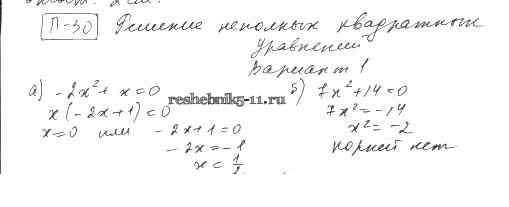 П-30 Решение неполных квадратных
уравнений
Вариант 1
а) -2x²+ x=0
x(-2x+1)=0
x=0 или -2x+1=0
-2x=-1
x=1/2
reshebnik5-11.ru
б) 7x²+14=0
7x²=-14
x²=-2
корней нет